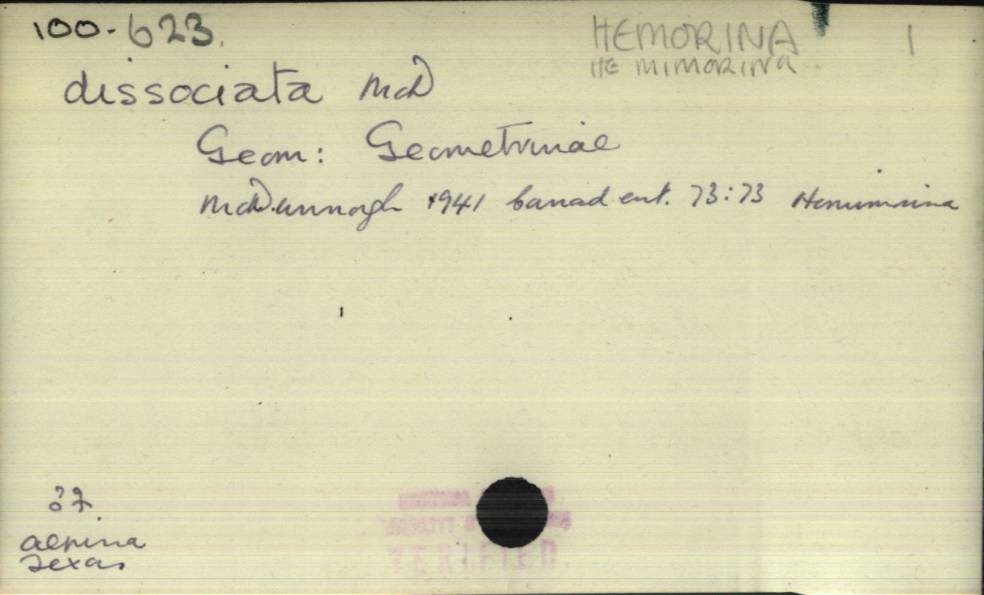 100-623.
HEMORINA 1
HEMIMORINA
dissociata McD
Geom: Geometrinae
McDunnogh 1941 Canad ent. 73:73 Hemimorina
♂♀
alpina
Texas
VERIFIED